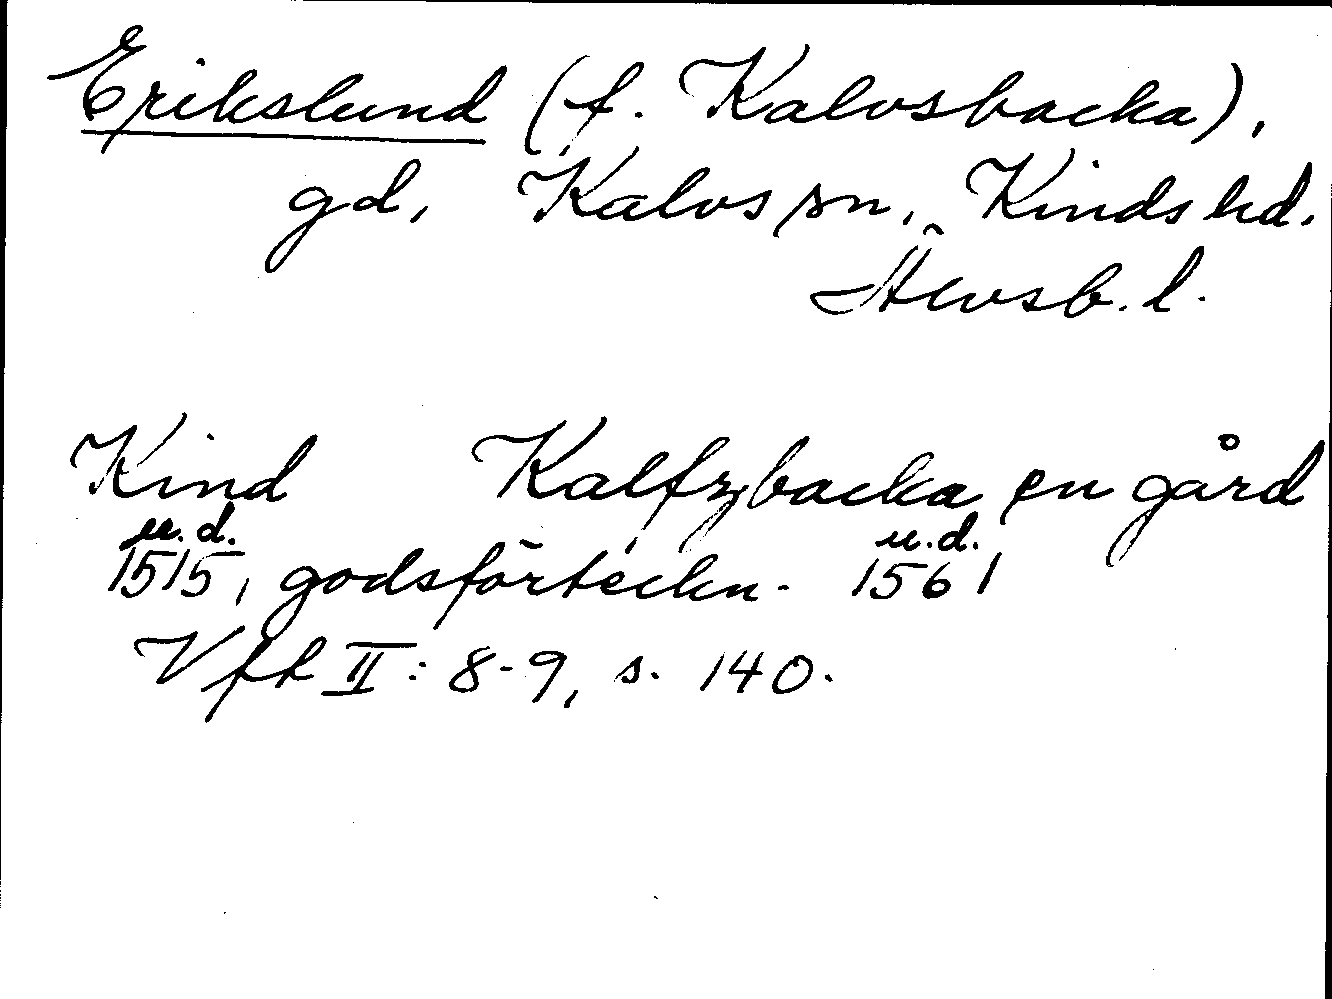 Erikslund (f. Kalvsbacka),
gd, Kalvs sn, Kinds hd.
Älvsb. l.
Kind Kalfzbacka en gård
u.d. u.d.
1515, godsförteckn. 1561
Vft II: 8-9, s. 140.